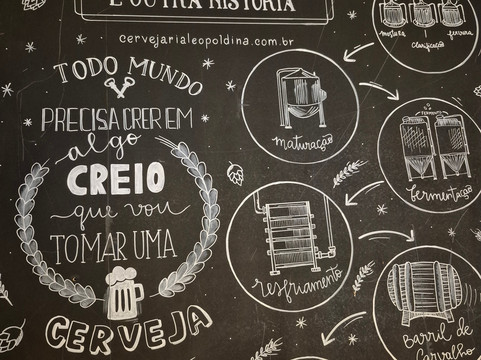 E OUTRA HISTÓRIA
cervejarialeopoldina.com.br
TODO MUNDO
PRECISA CRER EM
algo
CREIO
que vou
TOMAR UMA
CERVEJA
mostura
clarificação
fervura
maturação
fermentação
resfriamento
Barril de
Carvalho